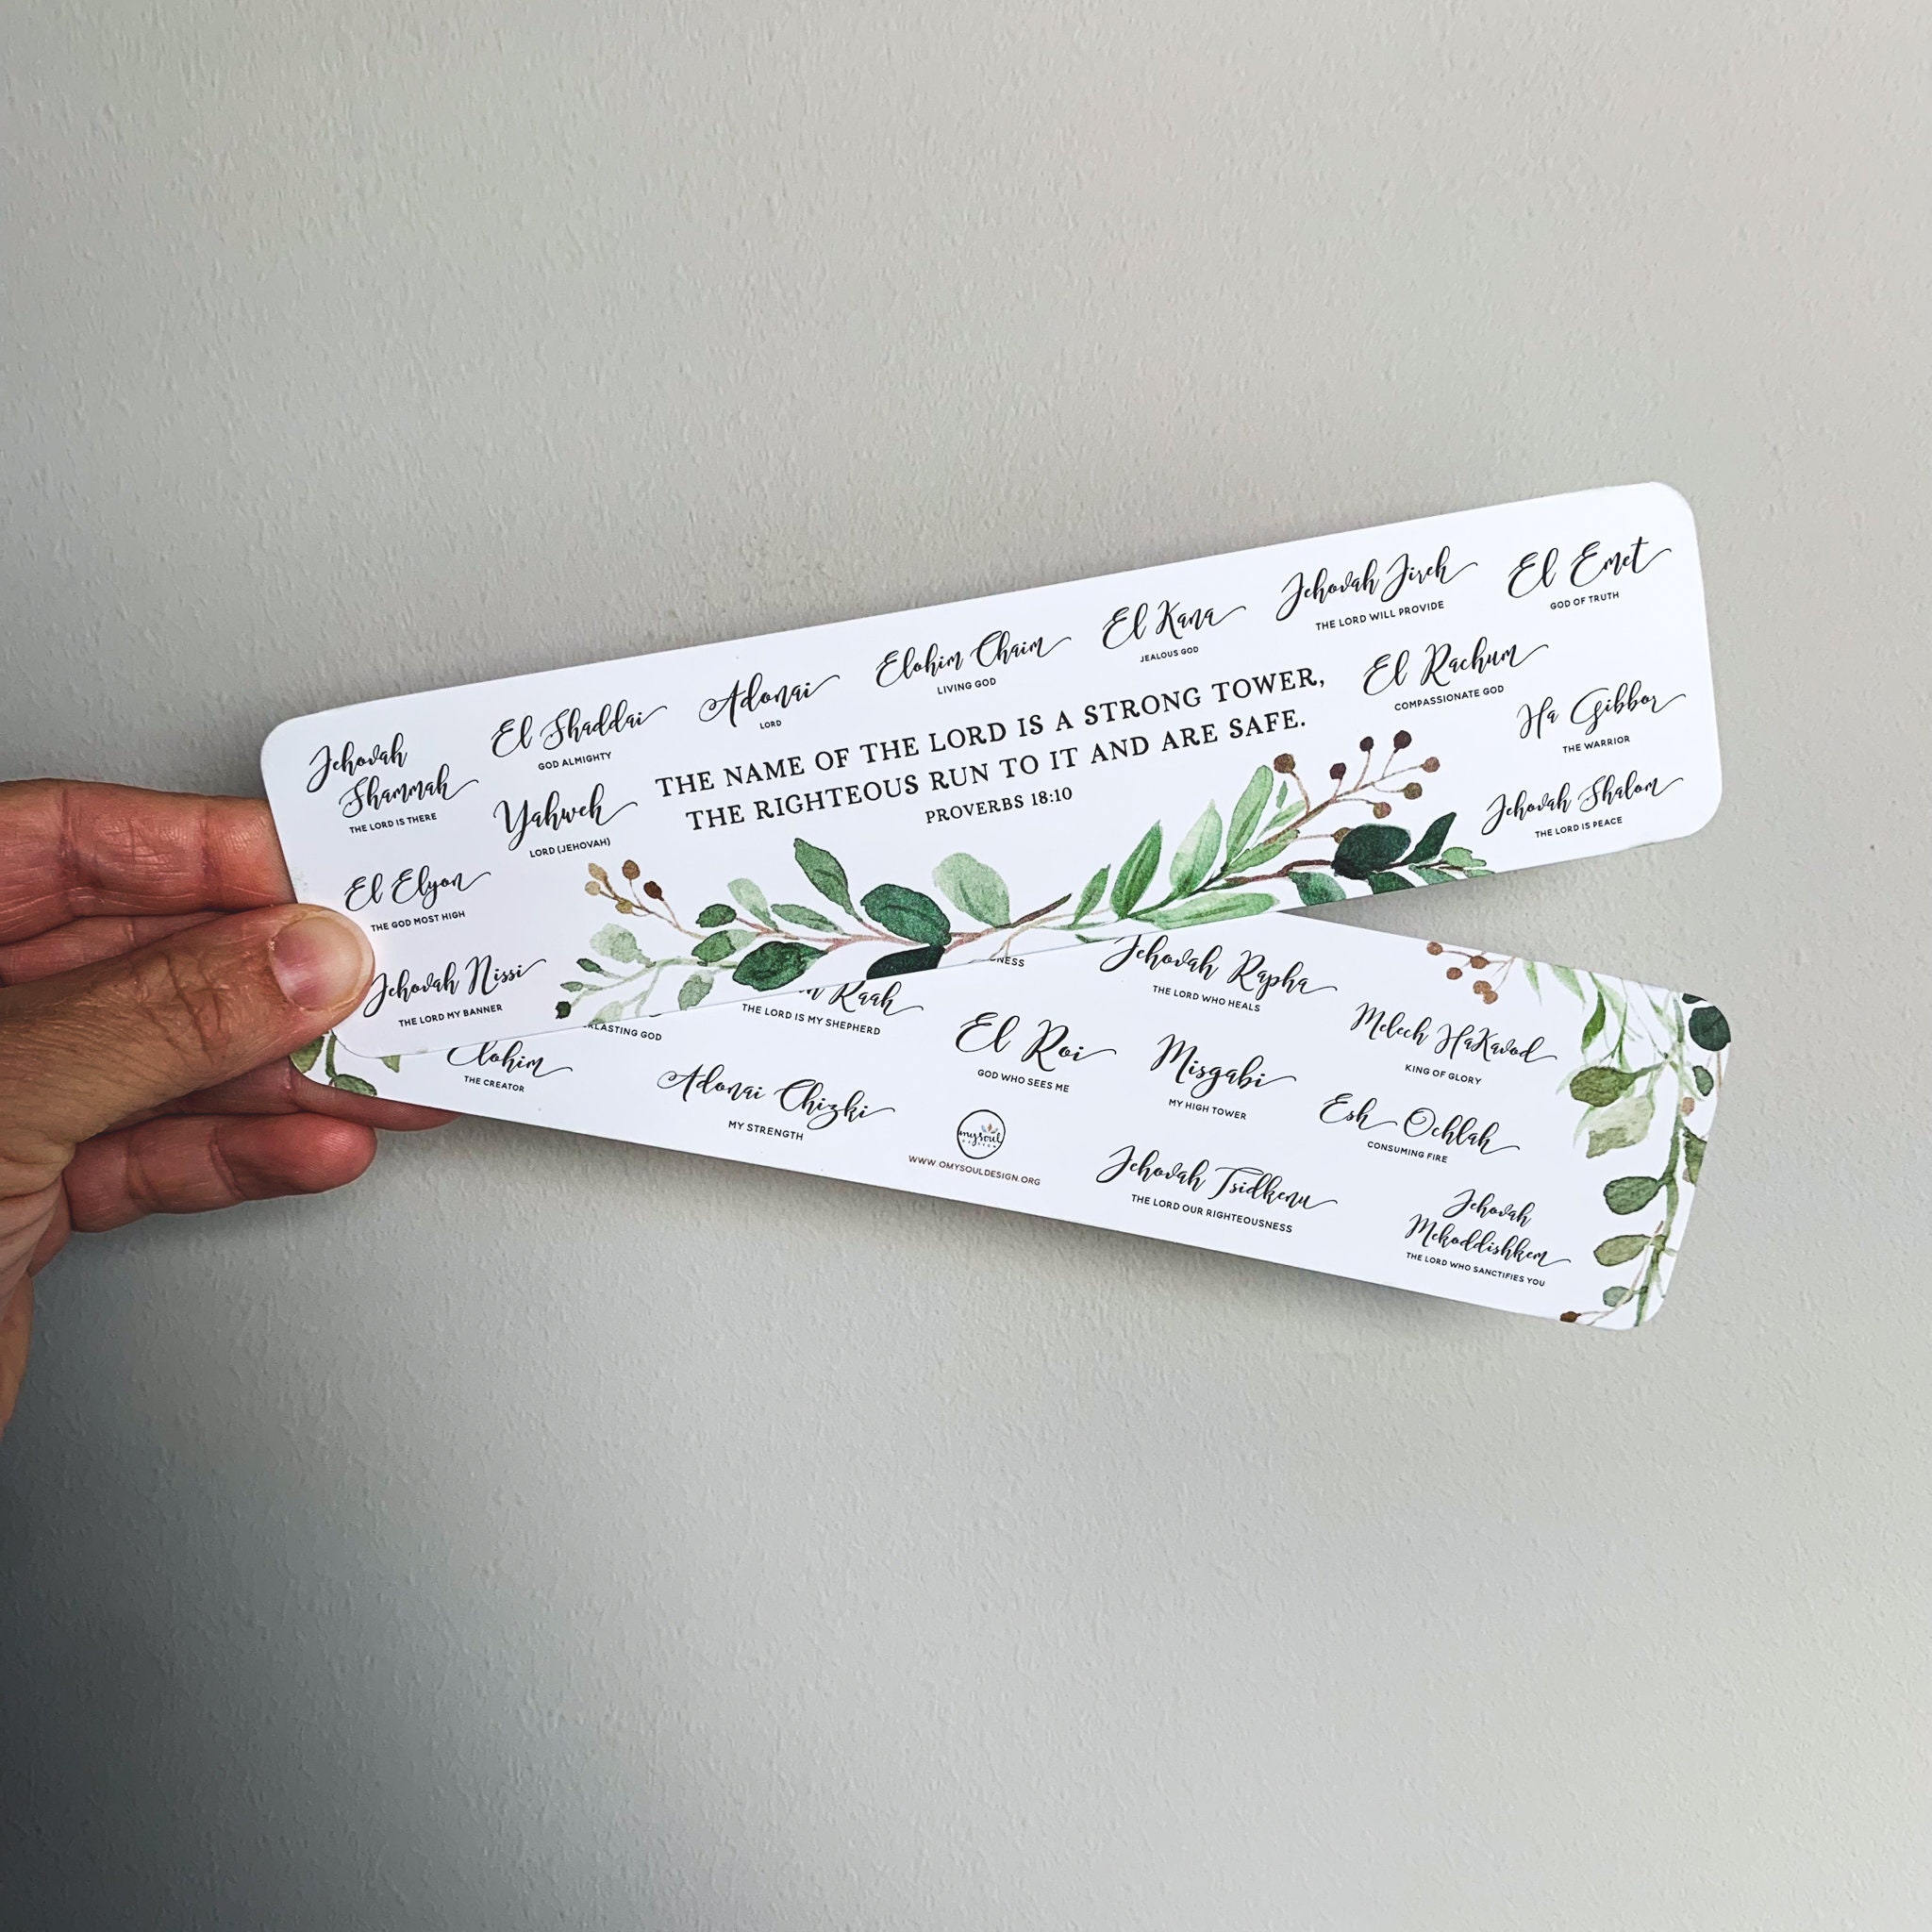 Jehovah
Shammah
THE LORD IS THERE
El Shaddai
GOD ALMIGHTY
Adonai
LORD
Elohim Chaim
LIVING GOD
El Kana
JEALOUS GOD
Jehovah Jireh
THE LORD WILL PROVIDE
El Emet
GOD OF TRUTH
Yahweh
LORD (JEHOVAH)
THE NAME OF THE LORD IS A STRONG TOWER,
THE RIGHTEOUS RUN TO IT AND ARE SAFE.
PROVERBS 18:10
El Rachum
COMPASSIONATE GOD
Ha Gibbor
THE WARRIOR
El Elyon
THE GOD MOST HIGH
Jehovah Shalom
THE LORD IS PEACE
Jehovah Nissi
THE LORD MY BANNER
Elohim
THE CREATOR
GOD
Raah
THE LORD IS MY SHEPHERD
Adonai Chizki
MY STRENGTH
El Roi
GOD WHO SEES ME
my soul
DESIGN
WWW.OMYSOULDESIGN.ORG
Jehovah Rapha
THE LORD WHO HEALS
Misgabi
MY HIGH TOWER
Melech HaKavod
KING OF GLORY
Esh Ochlah
CONSUMING FIRE
Jehovah Tsidkenu
THE LORD OUR RIGHTEOUSNESS
Jehovah
Mekoddishkem
THE LORD WHO SANCTIFIES YOU